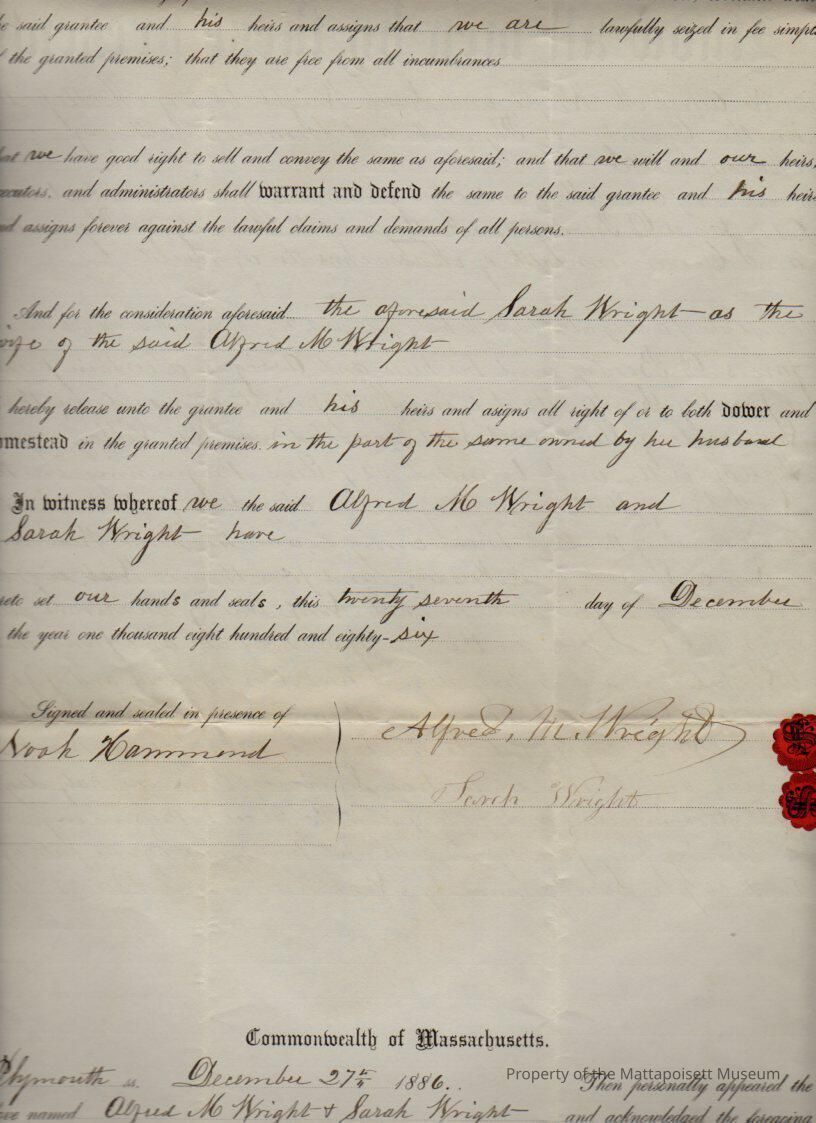 said grantee and his heirs and assigns that we are lawfully seized in fee simple
the granted premises; that they are free from all incumbrances
we have good right to sell and convey the same as aforesaid; and that we will and our heirs,
executors, and administrators shall warrant and defend the same to the said grantee and his heirs
assigns forever against the lawful claims and demands of all persons.
And for the consideration aforesaid the aforesaid Sarah Wright as the
wife of the said Alfred M Wright
hereby release unto the grantee and his heirs and asigns all right of or to both dower and
omestead in the granted premises. in the part of the same owned by her husband
In witness whereof we the said Alfred M Wright and
Sarah Wright have
reto set our hands and seals, this twenty seventh day of December
the year one thousand eight hundred and eighty-six
Signed and sealed in presence of
Noah Hammond
Alfred. M. Wright
Sarah Wright
Commonwealth of Massachusetts.
Plymouth ss. December 27th 1886. Then personally appeared the
named Alfred M Wright & Sarah Wright and acknowledged the foregoing
Property of the Mattapoisett Museum